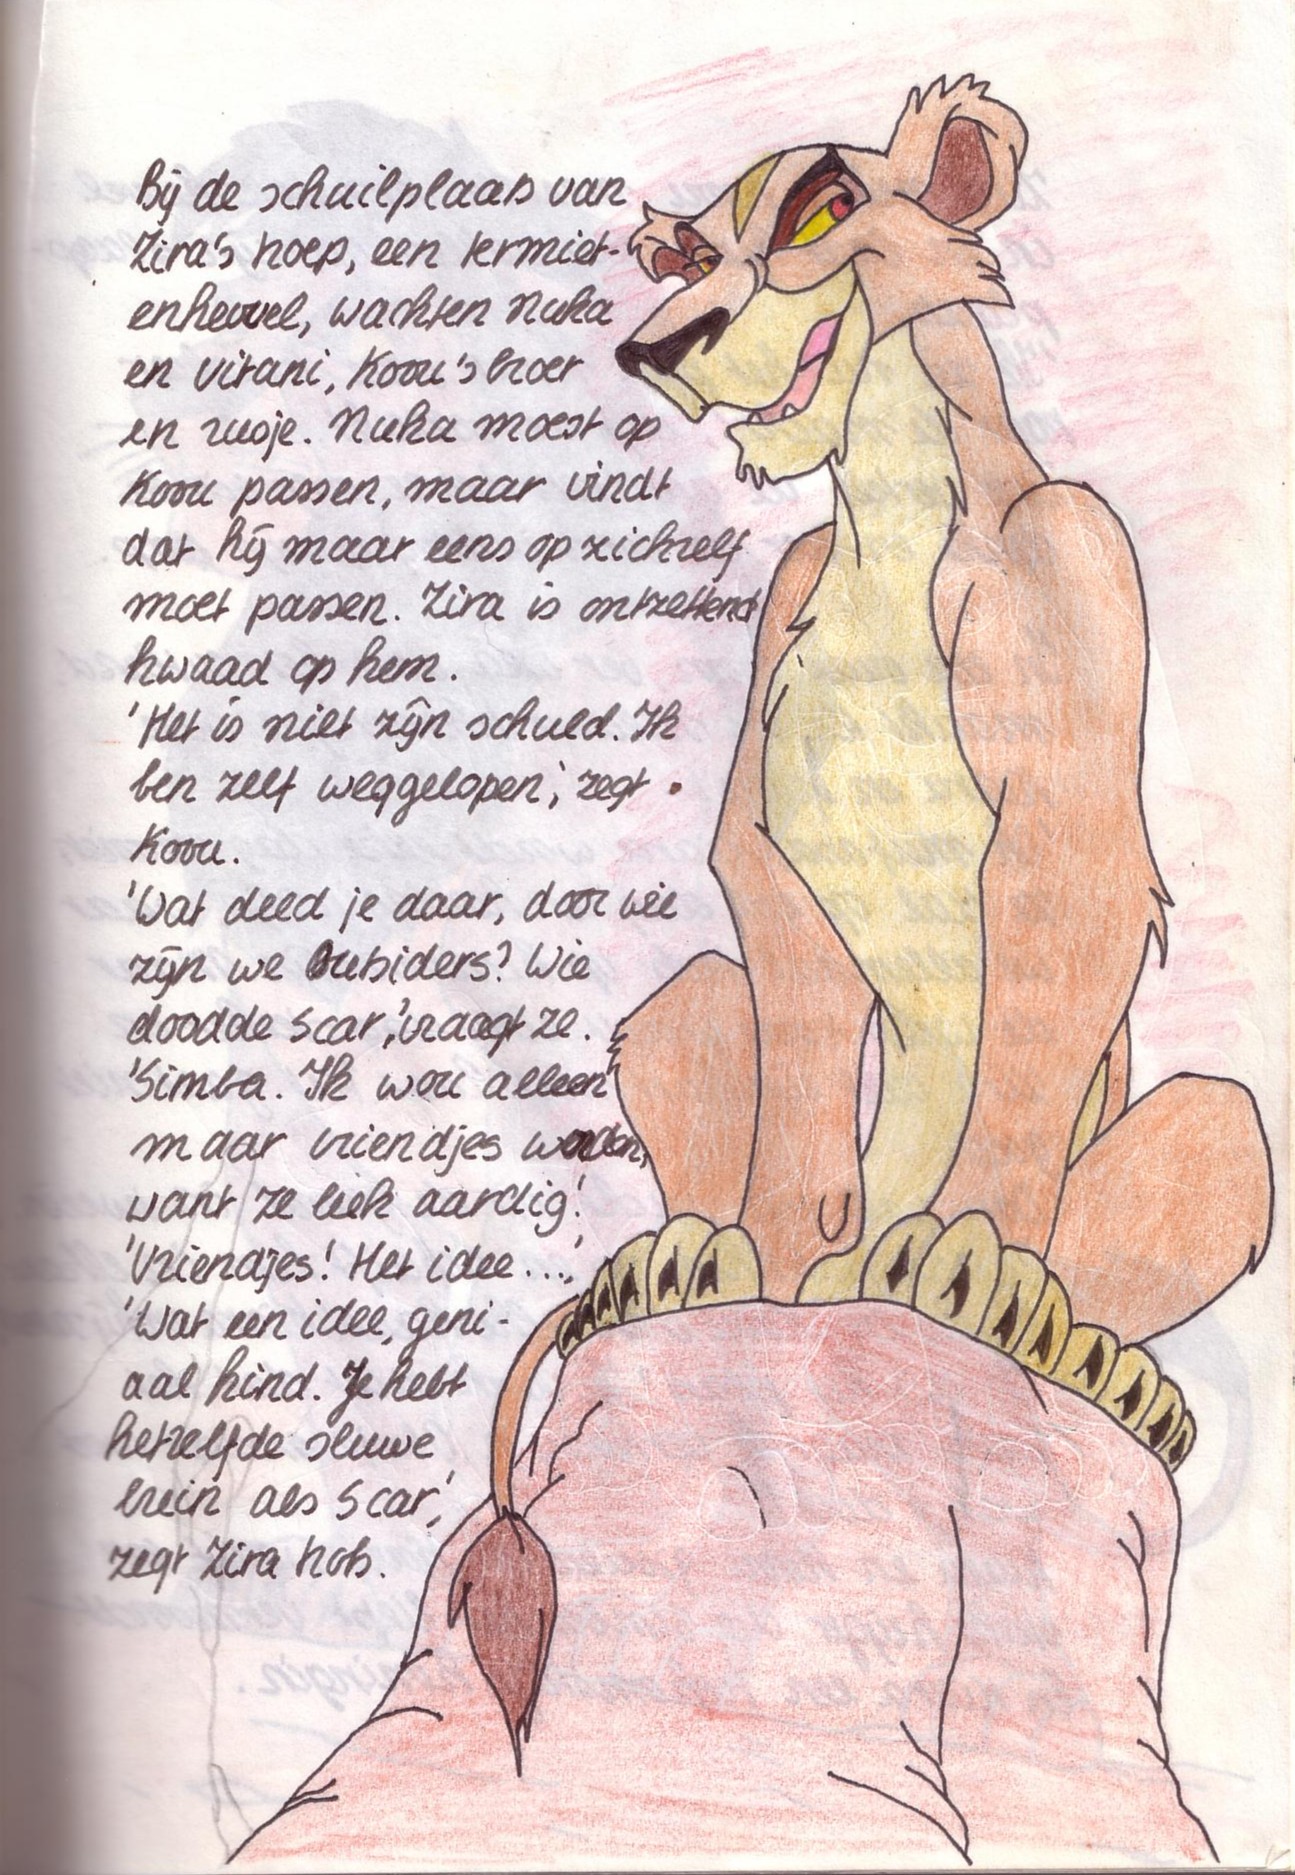 Bij de schuilplaats van
Zira's troep, een termiet-
enheuvel, wachten Nuka
en Vitani, Kovu's broer
en zusje. Nuka moest op
Kovu passen, maar vindt
dat hij maar eens op zichzelf
moet passen. Zira is ontzettend
kwaad op hem.
'Het is niet zijn schuld. Ik
ben zelf weggelopen,' zegt
Kovu.
'Wat deed je daar, door wie
zijn we Outsiders? Wie
doodde Scar,' vraagt ze.
'Simba. Ik wou alleen
maar vriendjes worden,
want ze leek aardig.'
'Vriendjes! Het idee...,'
'Wat een idee, geni-
aal kind. Je hebt
hetzelfde sluwe
brein als Scar,'
zegt Zira trots.